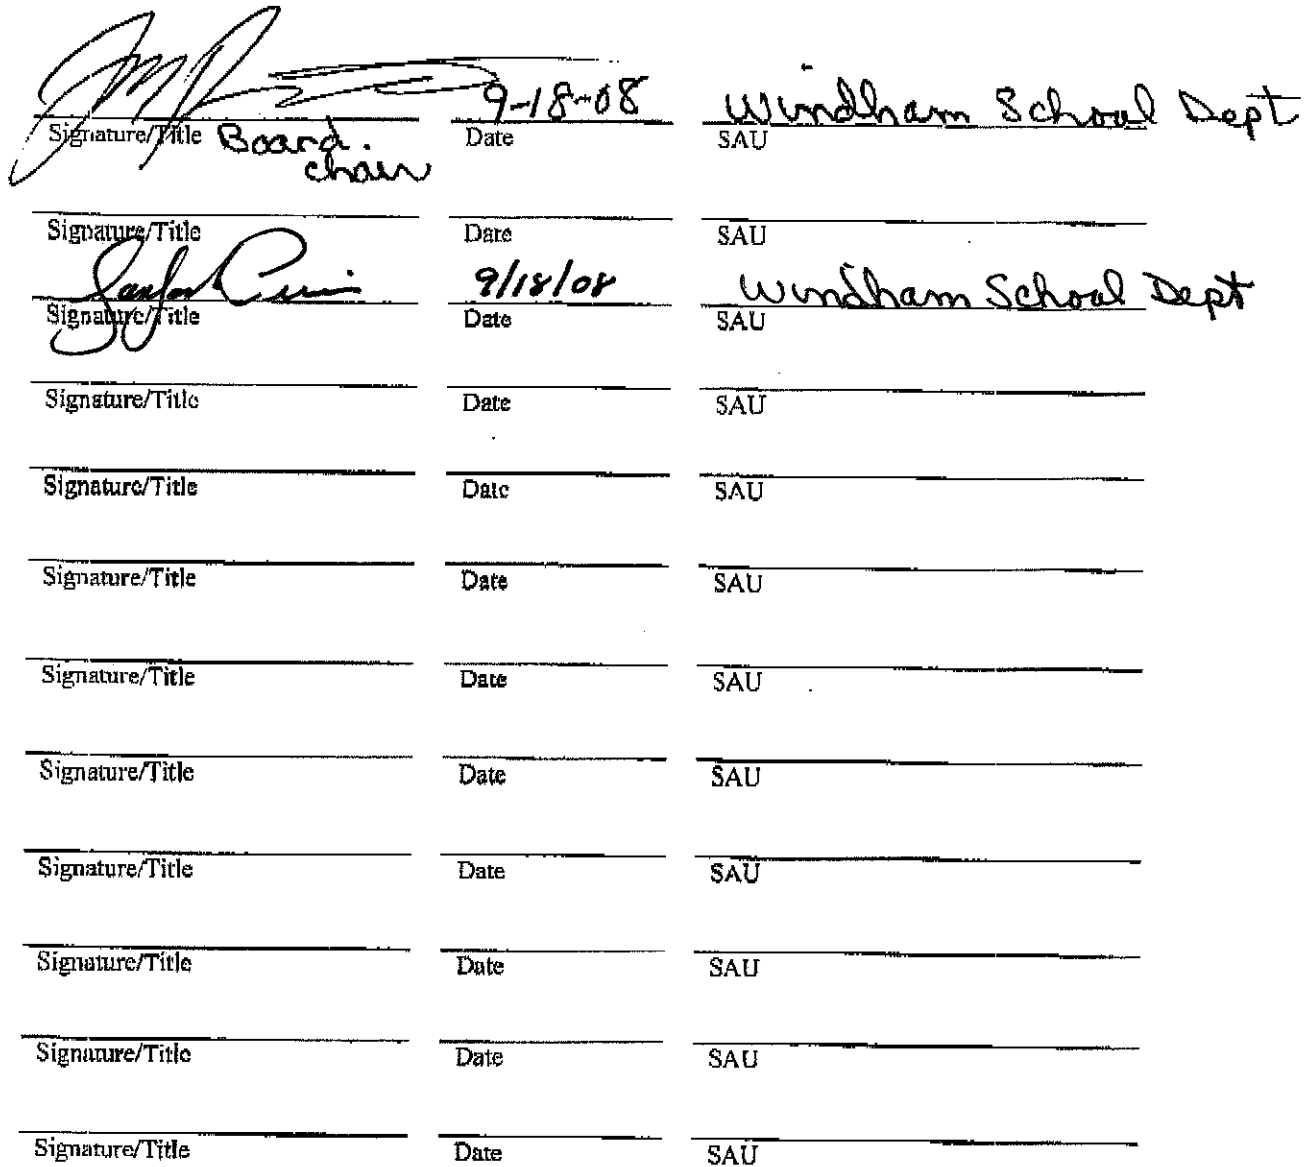 9-18-08 Windham School Dept
Signature/Title Board chair Date SAU
Signature/Title Date SAU
9/18/08 Windham School Dept
Signature/Title Date SAU
Signature/Title Date SAU
Signature/Title Date SAU
Signature/Title Date SAU
Signature/Title Date SAU
Signature/Title Date SAU
Signature/Title Date SAU
Signature/Title Date SAU
Signature/Title Date SAU
Signature/Title Date SAU